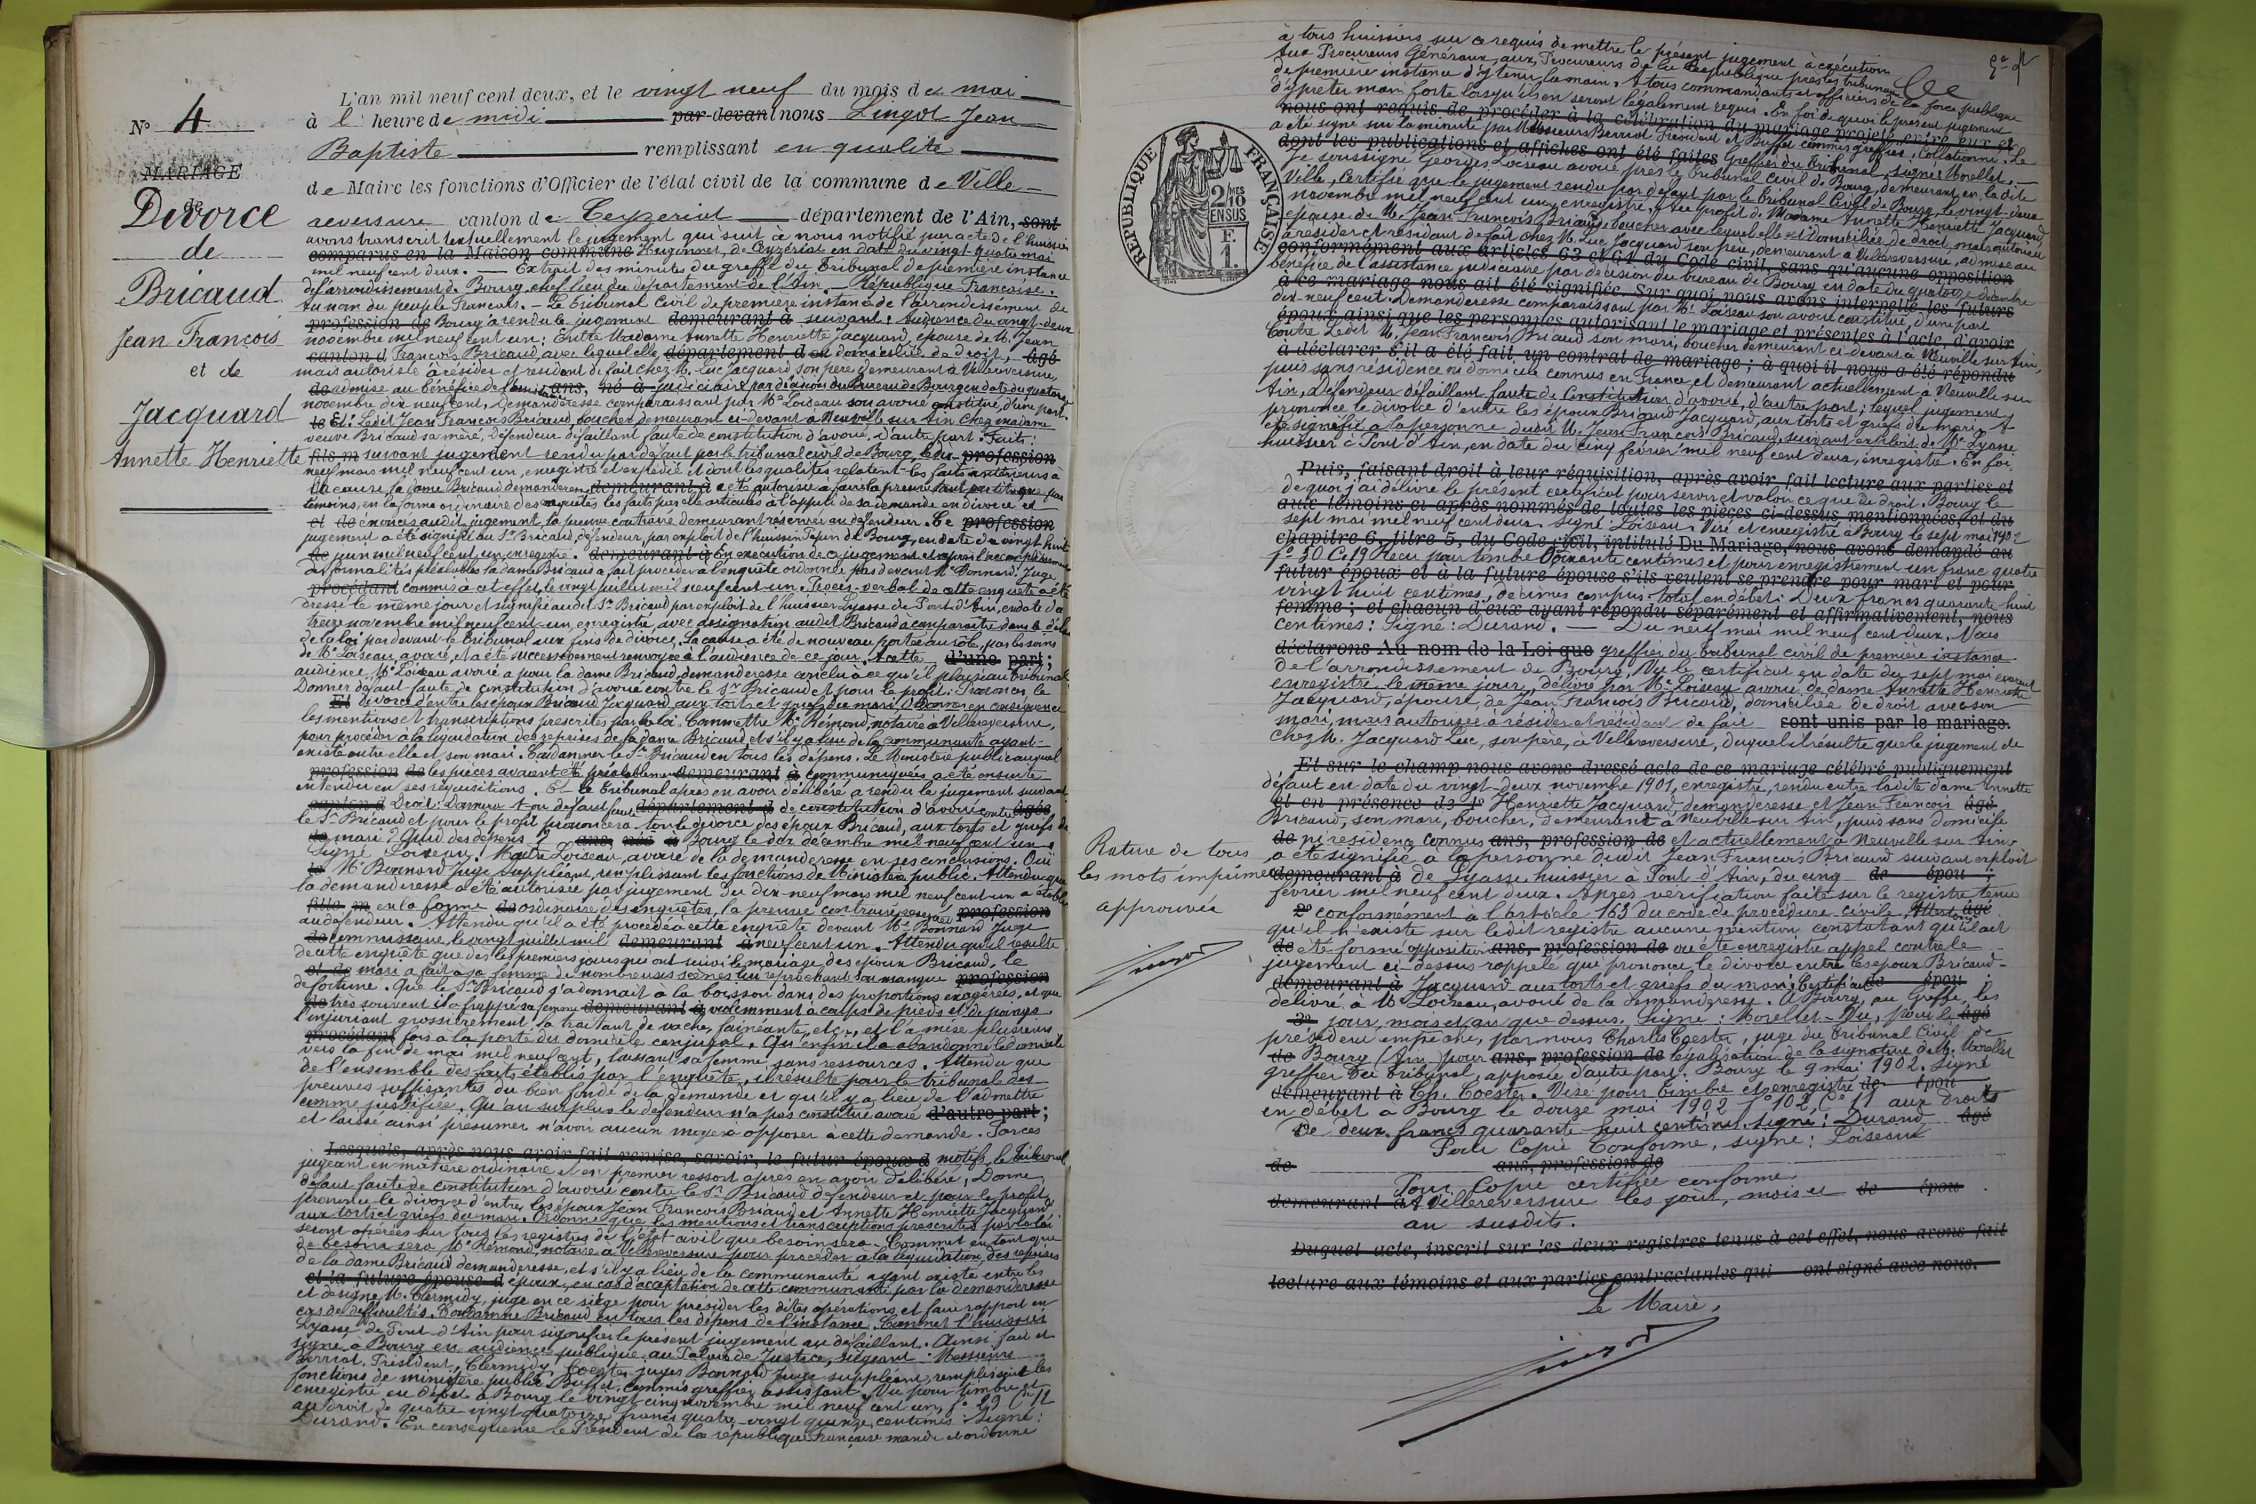 N° 4
MARIAGE
de
Divorce
de
Bricaud
Jean François
et de
Jacquard
Annette Henriette
L'an mil neuf cent deux, et le vingt neuf du mois de mai
à l' heure de midi par-devant nous Lingot Jean
Baptiste remplissant en qualité
de Maire les fonctions d'Officier de l'état civil de la commune de Ville-
reversure canton de Ceyzeriat département de l'Ain, sont
avons transcrit textuellement le jugement qui suit à nous notifié par acte de l'huissier
comparus en la Maison commune Hugonnet, de Ceyzériat en date du vingt quatre mai
mil neuf cent deux. — Extrait des minutes du greffe du Tribunal de première instance
de l'arrondissement de Bourg, chef lieu du département de l'Ain. — République Française.
Au nom du peuple Français. — Le Tribunal Civil de première instance de l'arrondissement de
profession de Bourg a rendu le jugement demeurant à suivant : Audience du vingt-deux
novembre mil neuf cent un : Entre Madame Annette Henriette Jacquard, épouse de M. Jean
canton d François Bricaud, avec lequel elle département d est domiciliée de droit, âgé
mais autorisée à résider et résidant de fait chez M. Luc Jacquard son père demeurant à Villereversure,
de admise au bénéfice de l'assistance ans, né à judiciaire par décision du Bureau de Bourg en date du quatorze
novembre dix neuf cent, Demanderesse comparaissant par Me Loiseau son avoué constitué, d'une part.
le Et : Ledit Jean François Bricaud boucher demeurant ci-devant à Neuville sur Ain chez madame
veuve Bricaud sa mère, Défendeur défaillant faute de constitution d'avoué, d'autre part. Faits :
fils m suivant jugement rendu par défaut par le tribunal civil de Bourg, le dix- profession
neuf mars mil neuf cent un, enregistré et expédié et dont les qualités relatent les faits antérieurs à
la cause, la dame Bricaud demanderesse demeurant à a été autorisée à faire la preuve tant par titres que par
témoins, en la forme ordinaire des enquêtes les faits par elle articulés à l'appui de sa demande en divorce et
et de énoncés audit jugement, la preuve contraire demeurant réservée au défendeur. Ce profession
jugement a été signifié au Sr Bricaud, défendeur, par exploit de l'huissier Pépin de Bourg, en date du vingt huit
de juin mil neuf cent un, enregistré. demeurant à En exécution de ce jugement et après l'accomplissement
des formalités préalables la dame Bricaud a fait procéder à l'enquête ordonnée par devant Mr Bonnard, Juge
procédant commis à cet effet, le vingt juillet mil neuf cent un. Procès-verbal de cette enquête a été
dressé le même jour et signifié audit Sr Bricaud par exploit de l'huissier Lyasse de Pont d'Ain, en date du
treize novembre mil neuf cent-un, enregistré, avec assignation audit Bricaud à comparaitre dans le délai
de la loi par devant le tribunal aux fins de divorce. La cause a été de nouveau portée au rôle, par les soins
de Me Loiseau, avoué, et a été successivement renvoyée à l'audience de ce jour. A cette d'une part ;
audience, Me Loiseau avoué a pour la dame Bricaud, demanderesse conclu à ce qu'il plaise au tribunal :
Donner défaut faute de constitution d'avoué contre le Sr Bricaud et pour le profit : Prononcer le
Et divorce d'entre les époux Bricaud Jacquard aux torts et griefs du mari, Ordonner en conséquence
les mentions et transcriptions prescrites par la loi. Commettre Me Rémond, notaire à Villereversure,
pour procéder à la liquidation des reprises de la dame Bricaud et s'il y a lieu de la communauté ayant
existé entre elle et son mari. Condamner le Sr Bricaud en tous les dépens. Le Ministère public auquel
profession de les pièces avaient été préalablement demeurant à communiquées a été ensuite
entendu en ses réquisitions. Et le tribunal après en avoir délibéré a rendu le jugement suivant
canton d Droit : Donnera-t-on défaut faute département d de constitution d'avoué contre âgée
le Sr Bricaud et pour le profit prononcera-t-on le divorce des époux Bricaud, aux torts et griefs du
de mari ? Quid des dépens ? ans, née à Bourg le dix décembre mil neuf cent un.
Signé Loiseau. Maître Loiseau, avoué de la demanderesse en ses conclusions. Ouï
la Mr Bonnard juge suppléant, remplissant les fonctions de Ministère public. Attendu que
la demanderesse a été autorisée par jugement du dix neuf mars mil neuf cent un à établir
fille m en la forme de ordinaire des enquêtes, la preuve contraire réservée profession
au défendeur. Attendu qu'il a été procédé à cette enquête devant Mr Bonnard Juge
de commissaire, le vingt juillet mil demeurant à neuf cent un. Attendu qu'il résulte
de cette enquête que dès les premiers jours qui ont suivi le mariage des époux Bricaud, le
et de mari a fait à sa femme de nombreuses scènes lui reprochant son manque profession
de fortune. Que le Sr Bricaud s'adonnait à la boisson dans des proportions exagérées, et que
de très souvent il a frappé sa femme demeurant à violemment à coups de pieds et de poings
l'injuriant grossièrement, la traitant de vache, fainéante, etc., et l'a mise plusieurs
procédant fois à la porte du domicile conjugal. Qu'enfin il a abandonné le domicile
vers la fin de mai mil neuf cent, laissant sa femme sans ressources. Attendu que
de l'ensemble des faits établis par l'enquête, il résulte pour le tribunal des
preuves suffisantes du bien fondé de la demande et qu'il y a lieu de l'admettre
comme justifiée. Qu'au surplus le défendeur n'a pas constitué avoué d'autre part ;
et laisse ainsi présumer n'avoir aucun moyen à opposer à cette demande. Par ces
Lesquels, après nous avoir fait remise, savoir, le futur époux d motifs, le Tribunal
jugeant en matière ordinaire et en premier ressort après en avoir délibéré ; Donne
défaut faute de constitution d'avoué contre le Sr Bricaud défendeur et pour le profit
prononce le divorce d'entre les époux Jean François Bricaud et Annette Henriette Jacquard
aux torts et griefs du mari. Ordonne que les mentions et transcriptions prescrites par la loi
seront opérées sur tous les registres de l'état civil que besoin sera. Commet en tant que
de besoin sera Me Rémond, notaire à Villereversure pour procéder à la liquidation des reprises
de la dame Bricaud demanderesse, et s'il y a lieu de la communauté ayant existé entre les
et la future épouse d époux, en cas d'acceptation de cette communauté par la demanderesse
et désigne M. Clermidy, juge en ce siège pour présider les dites opérations et faire rapport en
cas de difficultés. Condamne Bricaud en tous les dépens de l'instance. Commet l'huissier
Lyasse de Pont d'Ain pour signifier le présent jugement au défaillant. Ainsi fait et
signé à Bourg en audience publique au Palais de Justice, siégeant Messieurs
Berriat, Président, Clermidy, Coester juges Bonnard juge suppléant, remplissant les
fonctions de ministère public. Buffet, commis greffier assistant. Vu pour timbre et
enregistré en débet à Bourg le vingt cinq novembre mil neuf cent un, fo 29 Ce 11
au droit de quatre vingt quatorze francs quatre-vingt quinze centimes. Signé :
Durand. En conséquence le Président de la république Française mande et ordonne
à tous huissiers sur ce requis de mettre le présent jugement à exécution
Aux Procureurs Généraux, aux Procureurs de la République près les tribunaux
de première instance d'y tenir la main. A tous commandants et officiers de la force publique
d'y prêter main forte lorsqu'ils en seront légalement requis. En foi de quoi le présent jugement
nous ont requis de procéder à la célébration du mariage projeté entre eux et
a été signé sur la minute par Messieurs Berriat Président et Buffet commis greffier, Collationné. Le
dont les publications et affiches ont été faites Greffier du Tribunal, signé Morellet.
Je soussigné Georges Loiseau avoué près le tribunal civil de Bourg, demeurant en la dite
Ville, Certifie que le jugement rendu par défaut par le tribunal Civil de Bourg, le vingt-deux
novembre mil neuf cent un, enregistré, Au profit de Madame Annette Henriette Jacquard
épouse de M. Jean François Bricaud, boucher avec lequel elle est domiciliée de droit mais autorisée
à résider et résidant de fait chez M. Luc Jacquard son père, demeurant à Villereversure, admise au
conformément aux articles 63 et 64 du Code civil, sans qu'aucune opposition
bénéfice de l'assistance judiciaire par décision du bureau de Bourg en date du quatorze décembre
à ce mariage nous ait été signifiée. Sur quoi nous avons interpellé les futurs
dix-neuf cent. Demanderesse comparaissant par Me Loiseau son avoué constitué, d'une part
époux ainsi que les personnes autorisant le mariage et présentes à l'acte, d'avoir
Contre Ledit M. Jean François Bricaud son mari, boucher demeurant ci-devant à Neuville sur Ain,
à déclarer s'il a été fait un contrat de mariage ; à quoi il nous a été répondu
puis sans résidence ni domicile connus en France et demeurant actuellement à Neuville sur
Ain, Défendeur défaillant faute de Constitution d'avoué, d'autre part ; lequel jugement
prononce le divorce d'entre les époux Bricaud-Jacquard, aux torts et griefs du mari. A
été signifié à la personne dudit M. Jean François Bricaud, suivant exploit de Me Lyasse
huissier à Pont d'Ain, en date du cinq février mil neuf cent deux, enregistré. En foi
Puis, faisant droit à leur réquisition, après avoir fait lecture aux parties et
de quoi j'ai délivré le présent certificat pour servir et valoir ce que de droit. Bourg le
aux témoins ci-après nommés de toutes les pièces ci-dessus mentionnées, et du
sept mai mil neuf cent deux. Signé Loiseau. Visé et enregistré à Bourg le sept mai 1902
chapitre 6, titre 5, du Code civil, intitulé Du Mariage, nous avons demandé au
fo 50 Ce 19 Reçu pour timbre Soixante centimes et pour enregistrement un franc quatre
futur époux et à la future épouse s'ils veulent se prendre pour mari et pour
vingt huit centimes, décimes compris total en débet : Deux francs quarante huit
femme ; et chacun d'eux ayant répondu séparément et affirmativement, nous
centimes : Signé : Durand. — Du neuf mai mil neuf cent deux, Nous
déclarons Au nom de la Loi que greffier du tribunal civil de première instance
de l'arrondissement de Bourg, Vu le certificat en date du sept mai courant
enregistré le même jour, délivré par Me Loiseau avoué de dame Annette Henriette
Jacquard, épouse de Jean François Bricaud, domiciliée de droit avec son
mari, mais autorisée à résider et résidant de fait sont unis par le mariage.
chez M. Jacquard Luc, son père, à Villereversure, duquel il résulte que le jugement de
Et sur le champ nous avons dressé acte de ce mariage célébré publiquement
défaut en date du vingt-deux novembre 1901, enregistré, rendu entre ladite dame Annette
et en présence de 1° Henriette Jacquard, demanderesse et Jean François âgé
Bricaud, son mari, boucher, demeurant à Neuville sur Ain, puis sans domicile
de ni résidence connus ans, profession de et actuellement à Neuville sur Ain
a été signifié à la personne dudit Jean François Bricaud suivant exploit
demeurant à de Lyasse huissier à Pont d'Ain, du cinq de épou ;
février mil neuf cent deux. Après vérification faite sur le registre tenu
2° conformément à l'article 163 du code de procédure civile, Attestons âgé
qu'il n'existe sur ledit registre aucune mention constatant qu'il ait
de été formé opposition ans, profession de ou été enregistré appel contre le
jugement ci-dessus rappelé qui prononce le divorce entre les époux Bricaud-
demeurant à Jacquard aux torts et griefs du mari. Certificat de épou ;
délivré à Me Loiseau, avoué de la demanderesse. A Bourg, au Greffe, les
3° jour, mois et an que dessus. Signé : Morellet. Vu, pour le âgé
président empêché, par nous Charles Coester, juge du tribunal Civil de
de Bourg (Ain) pour ans, profession de légalisation de la signature de M. Morellet
greffier du tribunal, apposée d'autre part. Bourg le 9 mai 1902. Signé
demeurant à Ch. Coester. Visé pour timbre et enregistré de épou
en débet à Bourg le douze mai 1902 fo 102, Ce 11 aux droits
de deux francs quarante huit centimes. Signé : Durand âgé
Pour Copie Conforme, signé : Loiseau
de ans, profession de
Pour Copie certifiée conforme
demeurant à A Villereversure les jour, mois et de épou
an susdits.
Duquel acte, inscrit sur les deux registres tenus à cet effet, nous avons fait
lecture aux témoins et aux parties contractantes qui ont signé avec nous.
Le Maire,
Lingot
Rature de tous
les mots imprimés
approuvée
Lingot
RÉPUBLIQUE FRANÇAISE
2 MES
10
EN SUS
1 F.